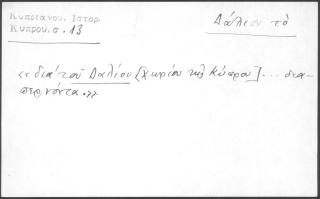 Κυπριανου. Ιστορ.
Κυπρου.σ. 13
Δάλιον τὸ
«διὰ τοῦ Δαλίου [χωρίου τῆς Κύπρου]... δια-
περνόντα.»